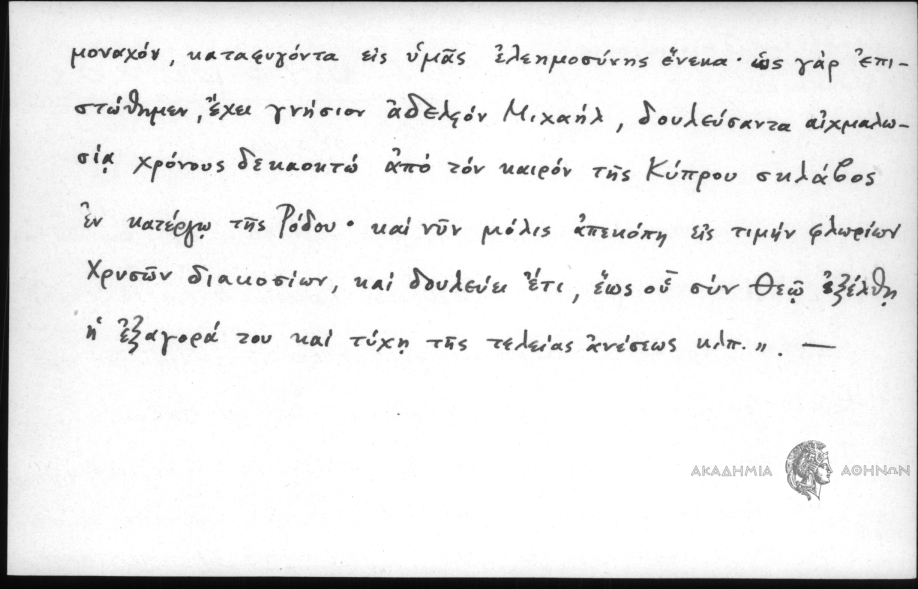 μοναχόν, καταφυγόντα εἰς ὑμᾶς ἐλεημοσύνης ἕνεκα· ὡς γὰρ ἐπι-
στώθημεν, ἔχει γνήσιον ἀδελφόν Μιχαήλ, δουλεύσαντα αἰχμαλω-
σίᾳ χρόνους δεκαοκτώ ἀπό τόν καιρόν τῆς Κύπρου σκλάβος
ἐν κατέργῳ τῆς Ρόδου· καί νῦν μόλις ἀπεκόπη εἰς τιμήν φλωρίων
χρυσῶν διακοσίων, καί δουλεύει ἔτι, ἕως οὗ σύν Θεῷ ἐξέλθῃ
ἡ ἐξαγορά του καί τύχῃ τῆς τελείας ἀνέσεως κλπ.». —
ΑΚΑΔΗΜΙΑ ΑΘΗΝΩΝ